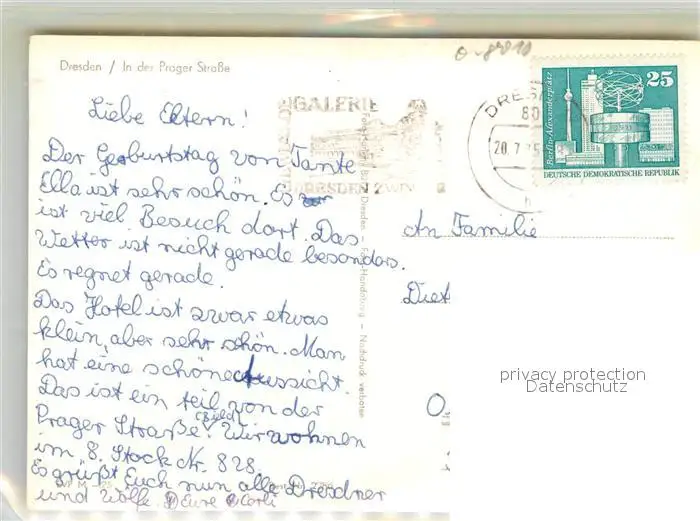 Dresden / In der Prager Straße
Liebe Eltern!
Der Geburtstag von Tante
Ella ist sehr schön. Es
ist viel Besuch dort. Das
Wetter ist nicht gerade besonders.
Es regnet gerade.
Das Hotel ist zwar etwas
klein, aber sehr schön. Man
hat eine schöne Aussicht.
Das ist ein teil von der
(Bild)
Prager Straße. Wir wohnen
im 8. Stock Nr. 828.
Es grüßt Euch nun alle Dresdner
und Wölfe. Eure
GALERIE
DRESDEN ZWINGER
DRES
80
20.7.75
Berlin-Alexanderplatz
25
DEUTSCHE DEMOKRATISCHE REPUBLIK
An Familie
Diet
O
privacy protection
Datenschutz